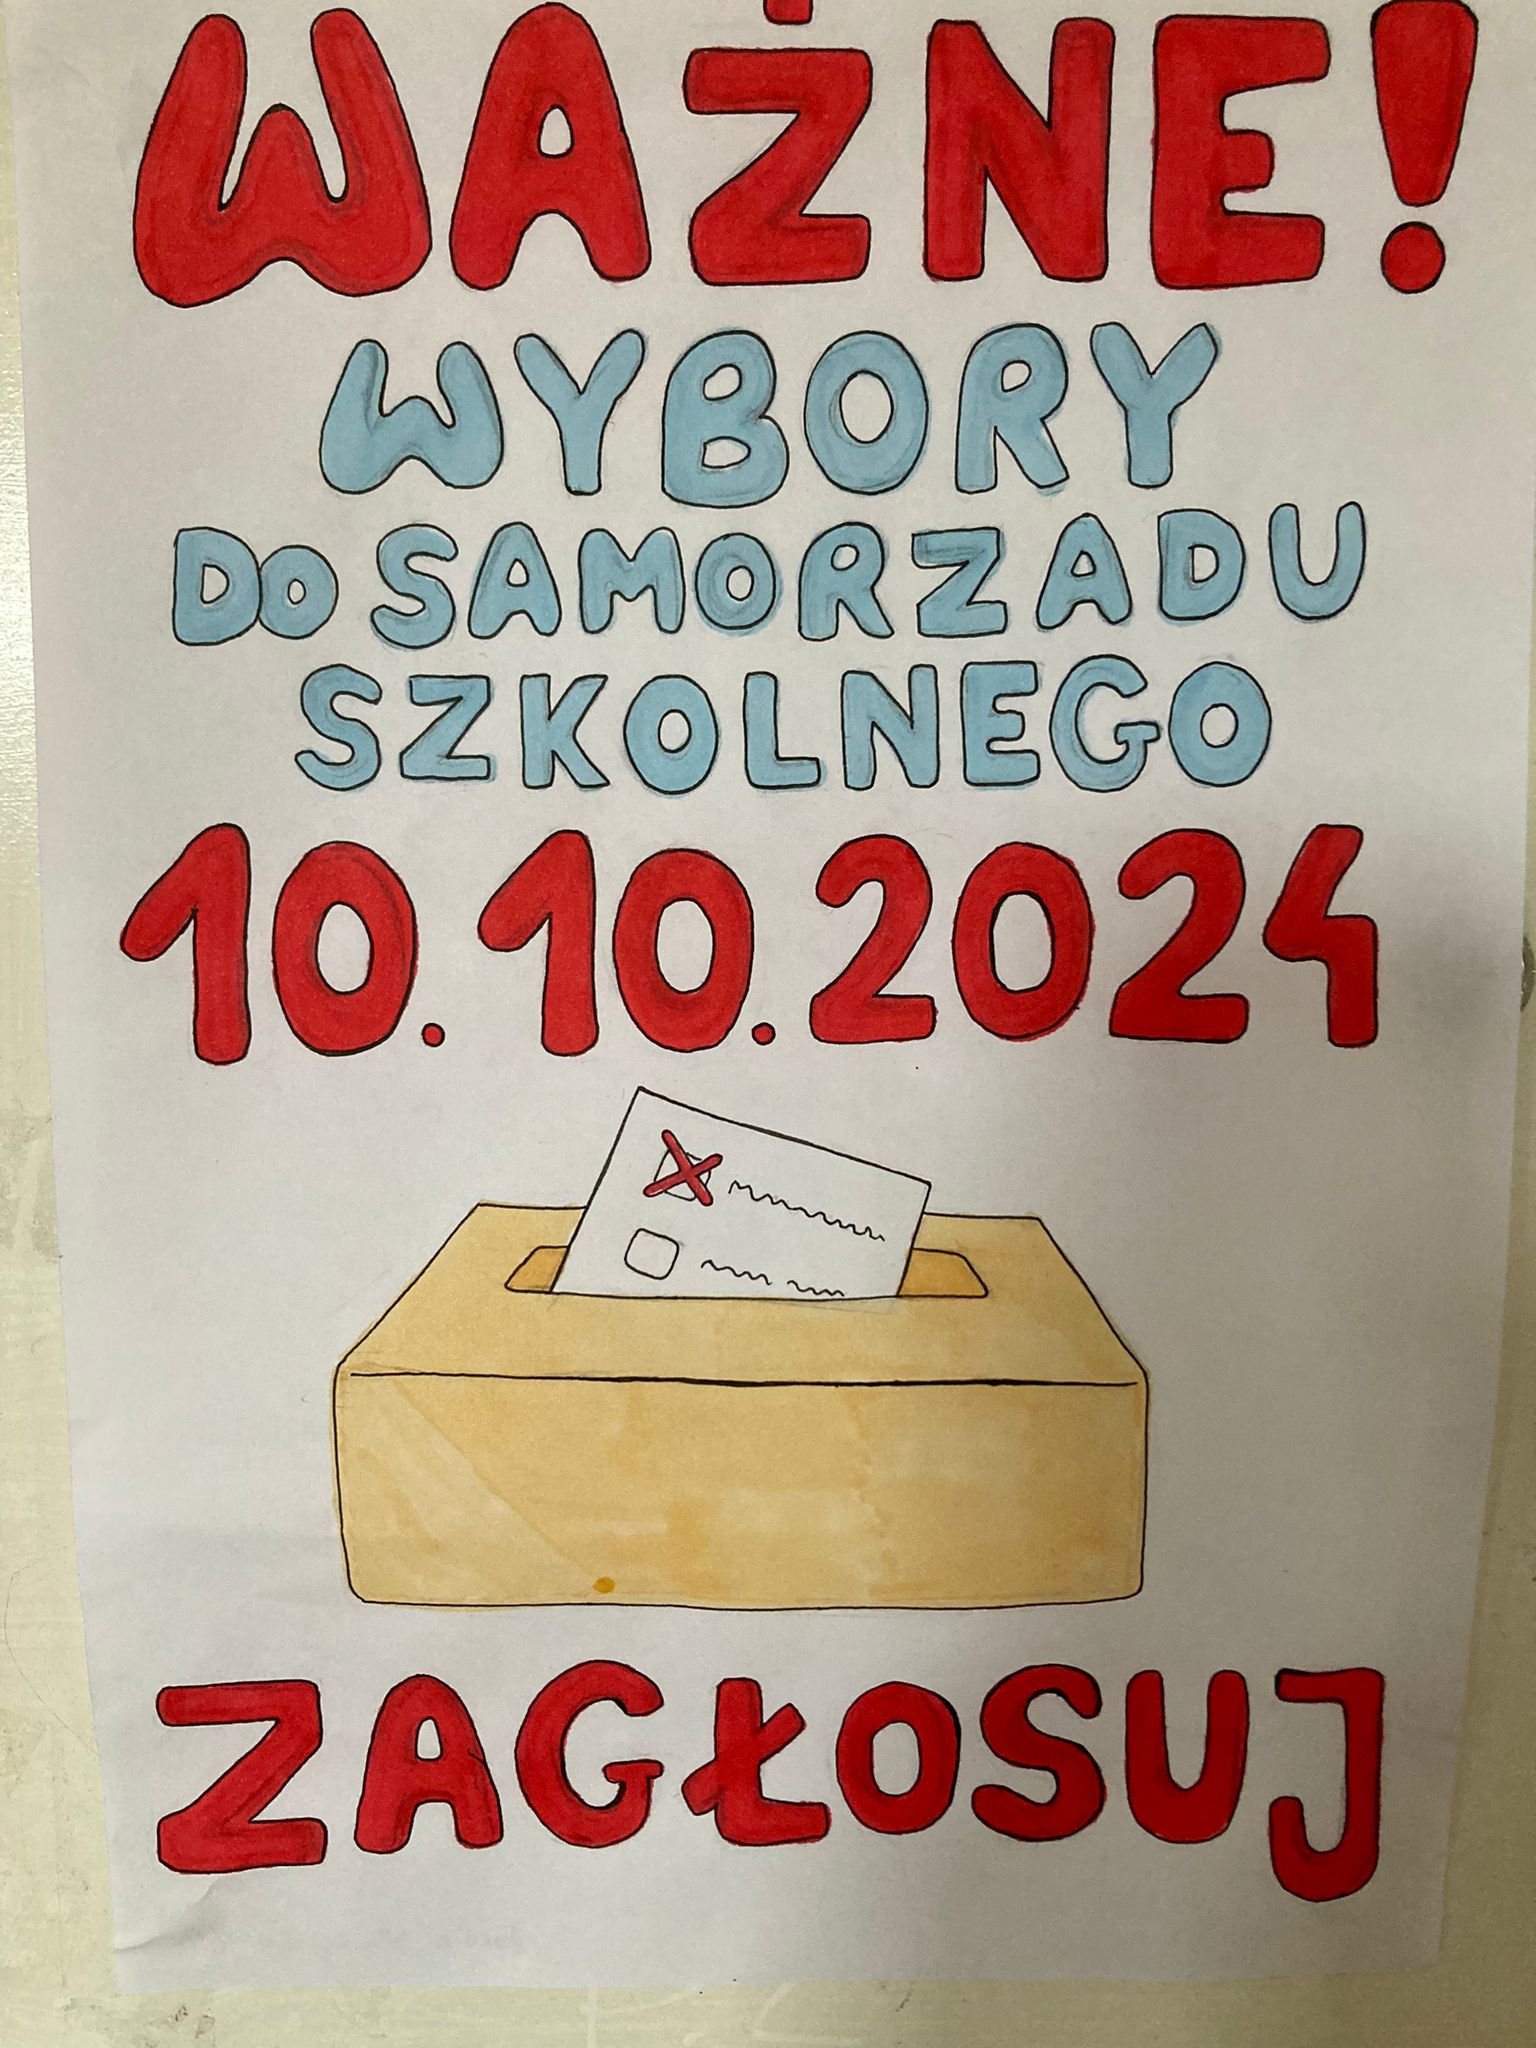 WAŻNE!
WYBORY
DO SAMORZADU
SZKOLNEGO
10.10.2024
ZAGŁOSUJ